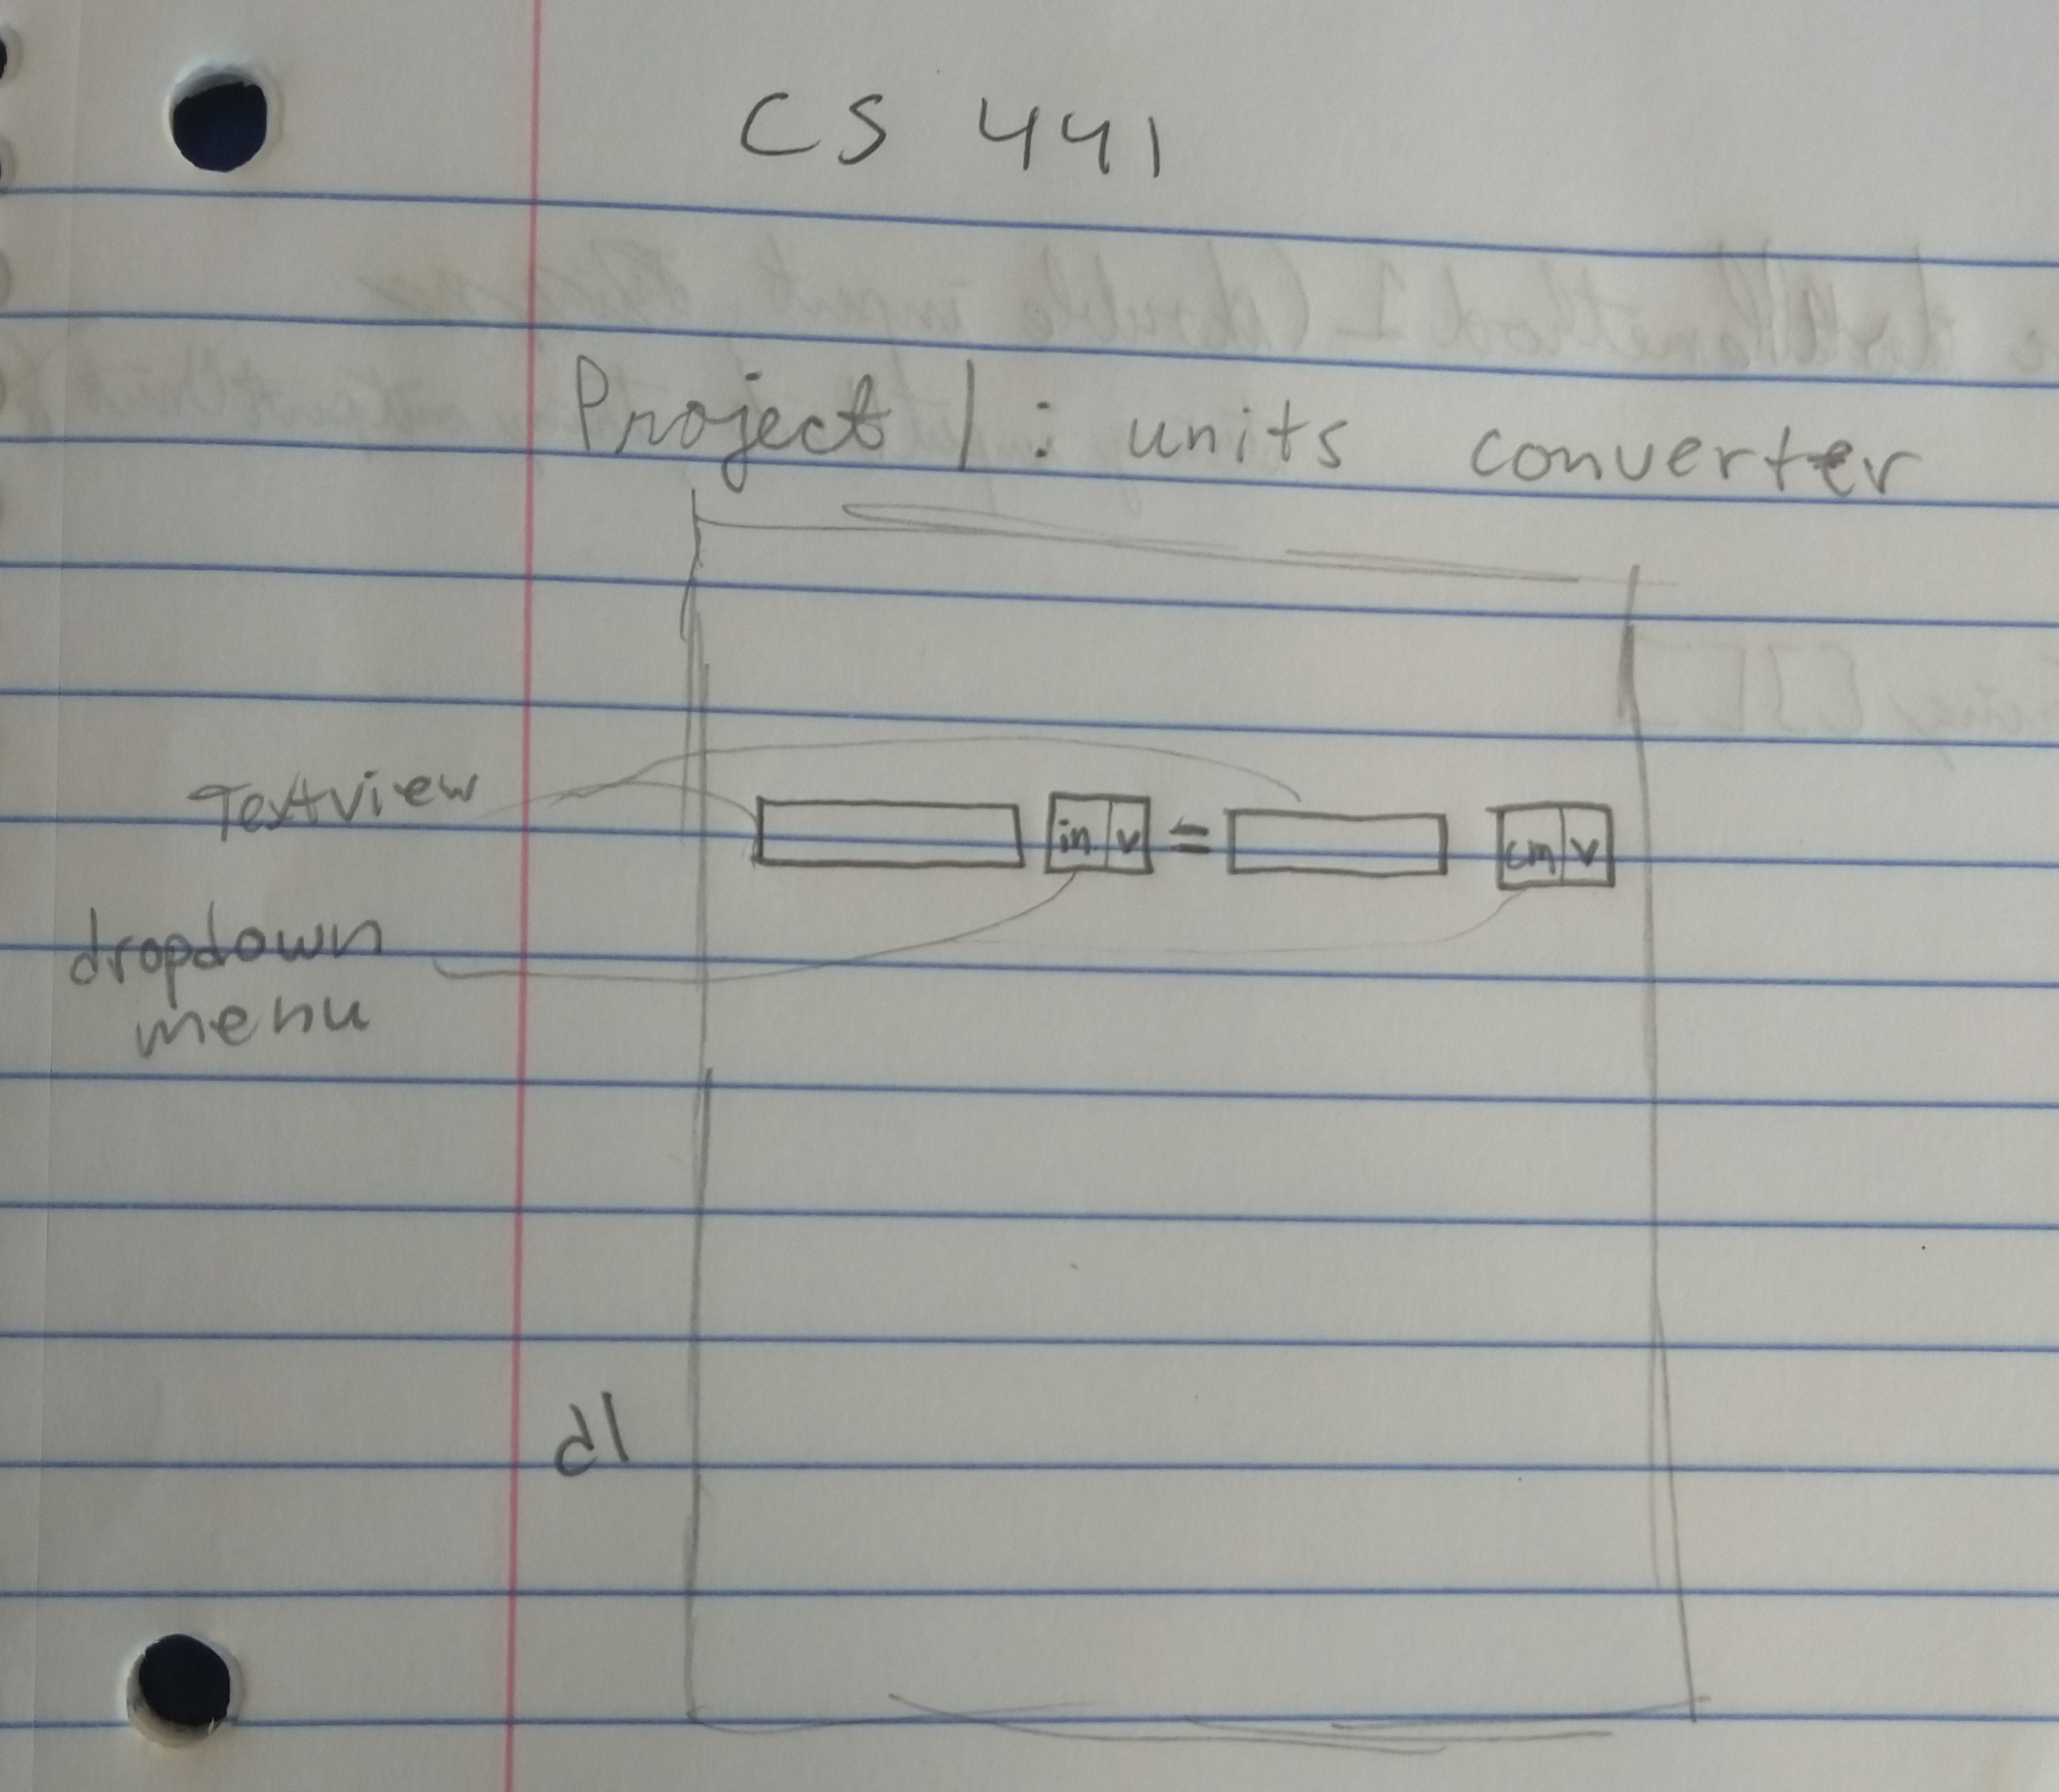 CS 441
Project 1: units converter
Textview
in. v = cm v
dropdown
menu
dl